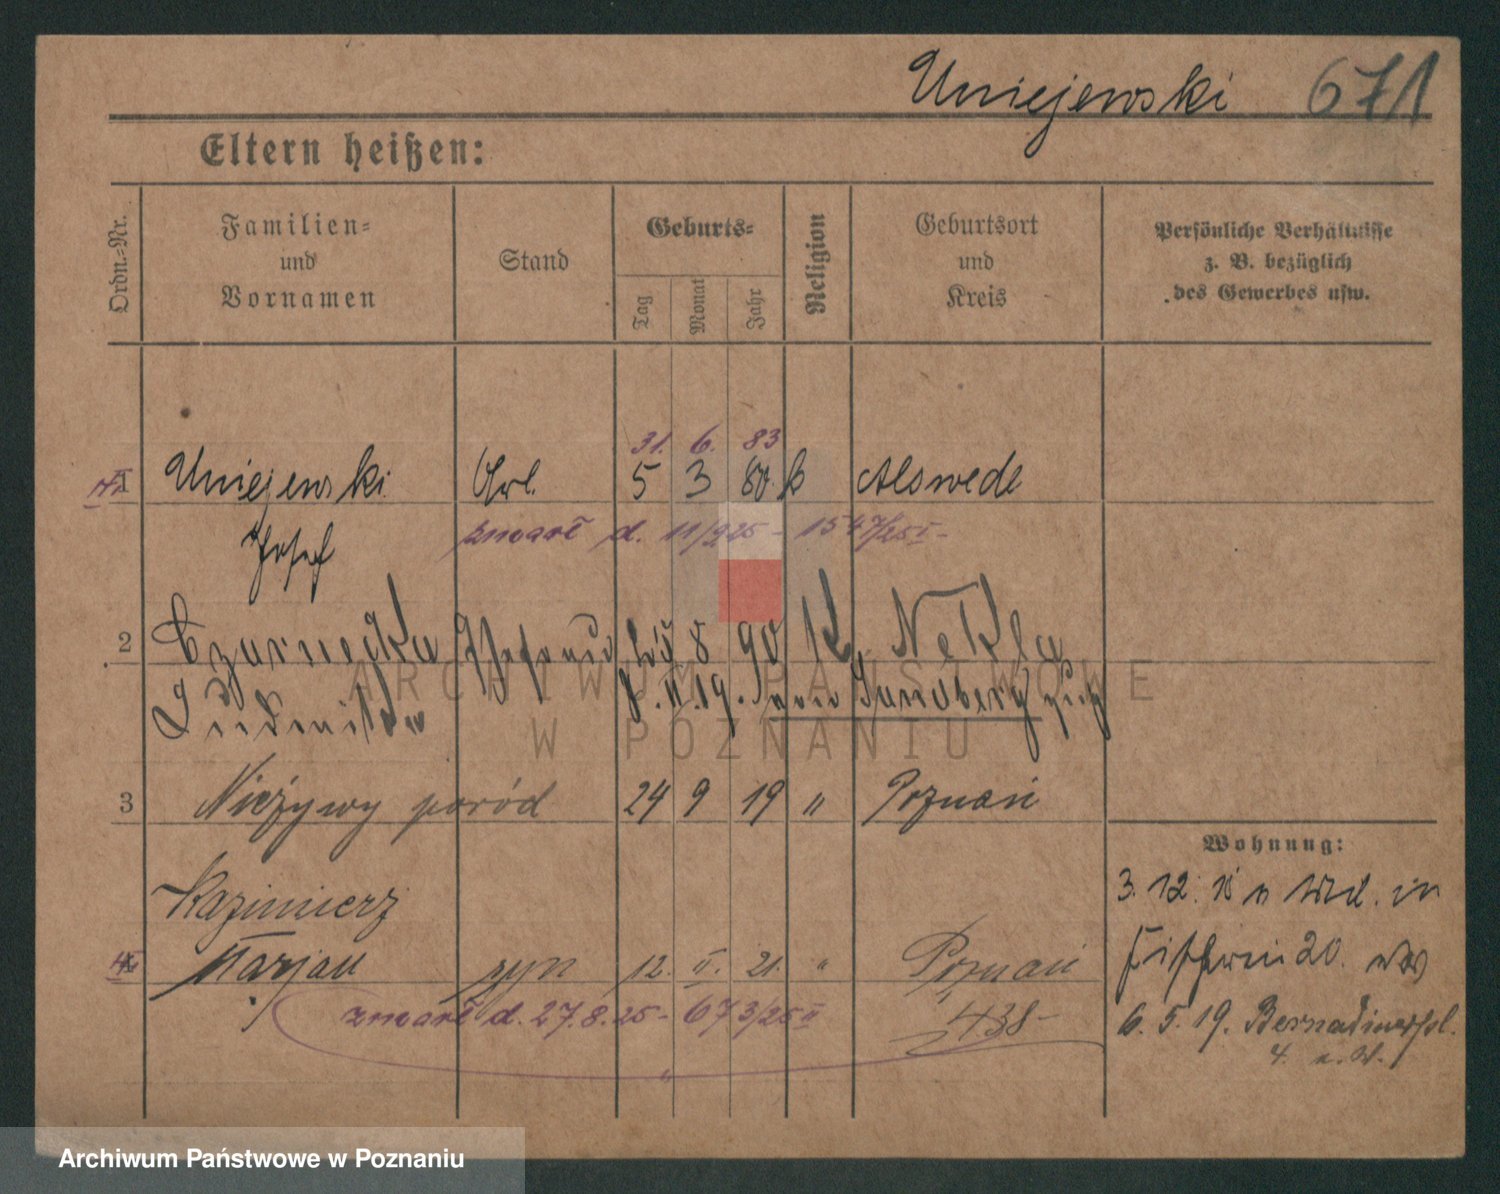 Uniejewski 671
Eltern heißen:
Ordn.-Nr.
Familien- und Vornamen
Stand
Geburts-
Tag
Monat
Jahr
Religion
Geburtsort und Kreis
Persönliche Verhältnisse z. B. bezüglich des Gewerbes usw.
31. 6. 83
1 Uniejewski Arb. 5 3 80. k Alswede
Josef
zmarł d. 11/9 25 - 1547/25 I -
2 Czarnecka 8 90 k Nekla
Ludmiła
3 Nieżywy poród 24 9 19 " Poznań
Wohnung:
3. 12. 18 in
Fischerei 20.
6. 5. 19. Bernadinerpl.
4.
Kazimierz
Marjan syn 12. II. 21. " Poznań
438-
zmarł d. 27.8.25 - 673/25 II
ARCHIWUM PAŃSTWOWE
W POZNANIU
Archiwum Państwowe w Poznaniu